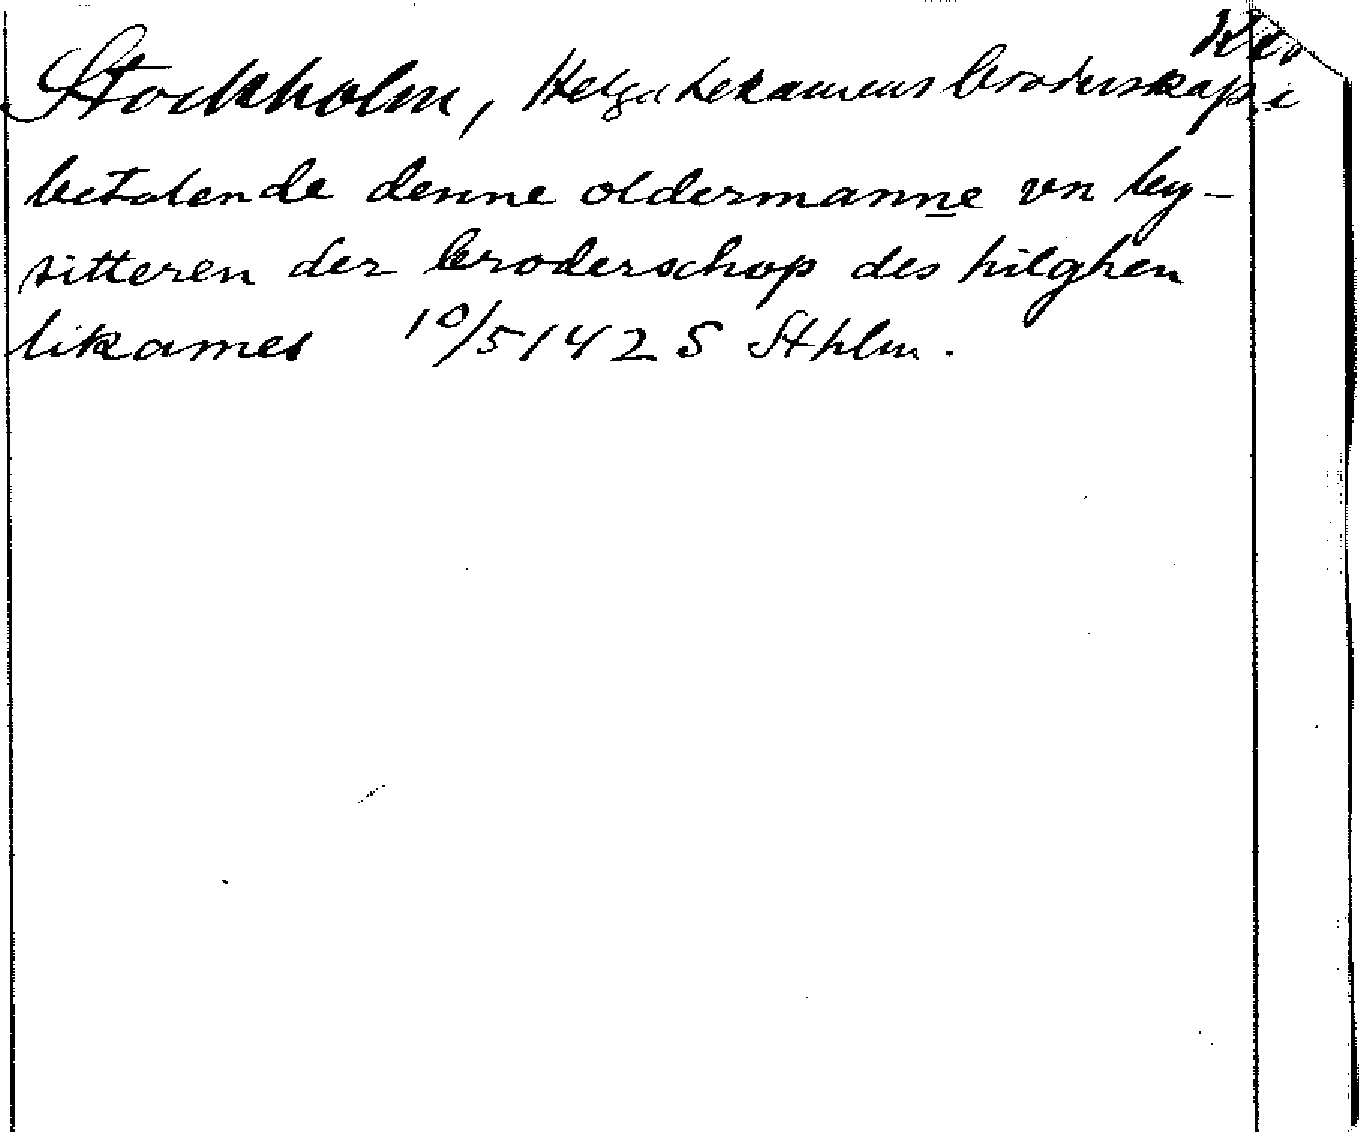 Stockholm, Helga Lekamens broderskap i
betalende denne oldermanne vn by-
sitteren der broderschop des hilghen
likames 10/5 1425 Sthlm.